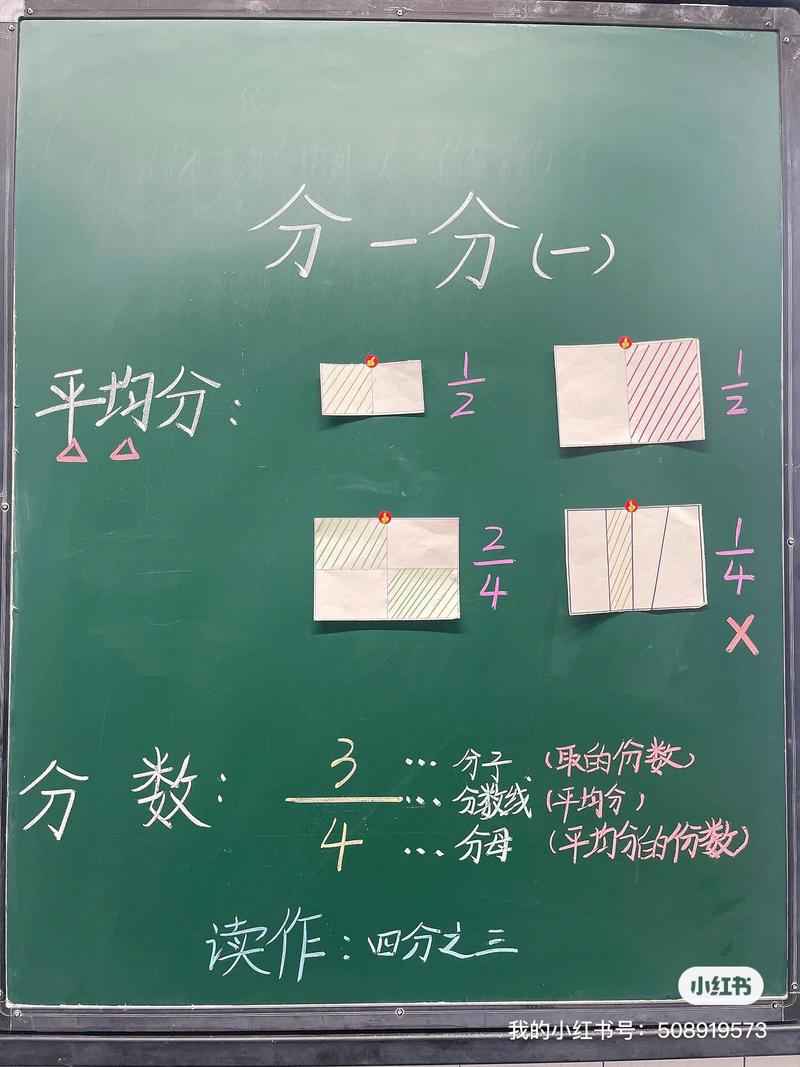 分一分(一)
平均分:
1/2
1/2
2/4
1/4
X
分数:
3 … 分子 (取的份数)
… 分数线 (平均分)
4 … 分母 (平均分的份数)
读作:四分之三
小红书
我的小红书号:508919573